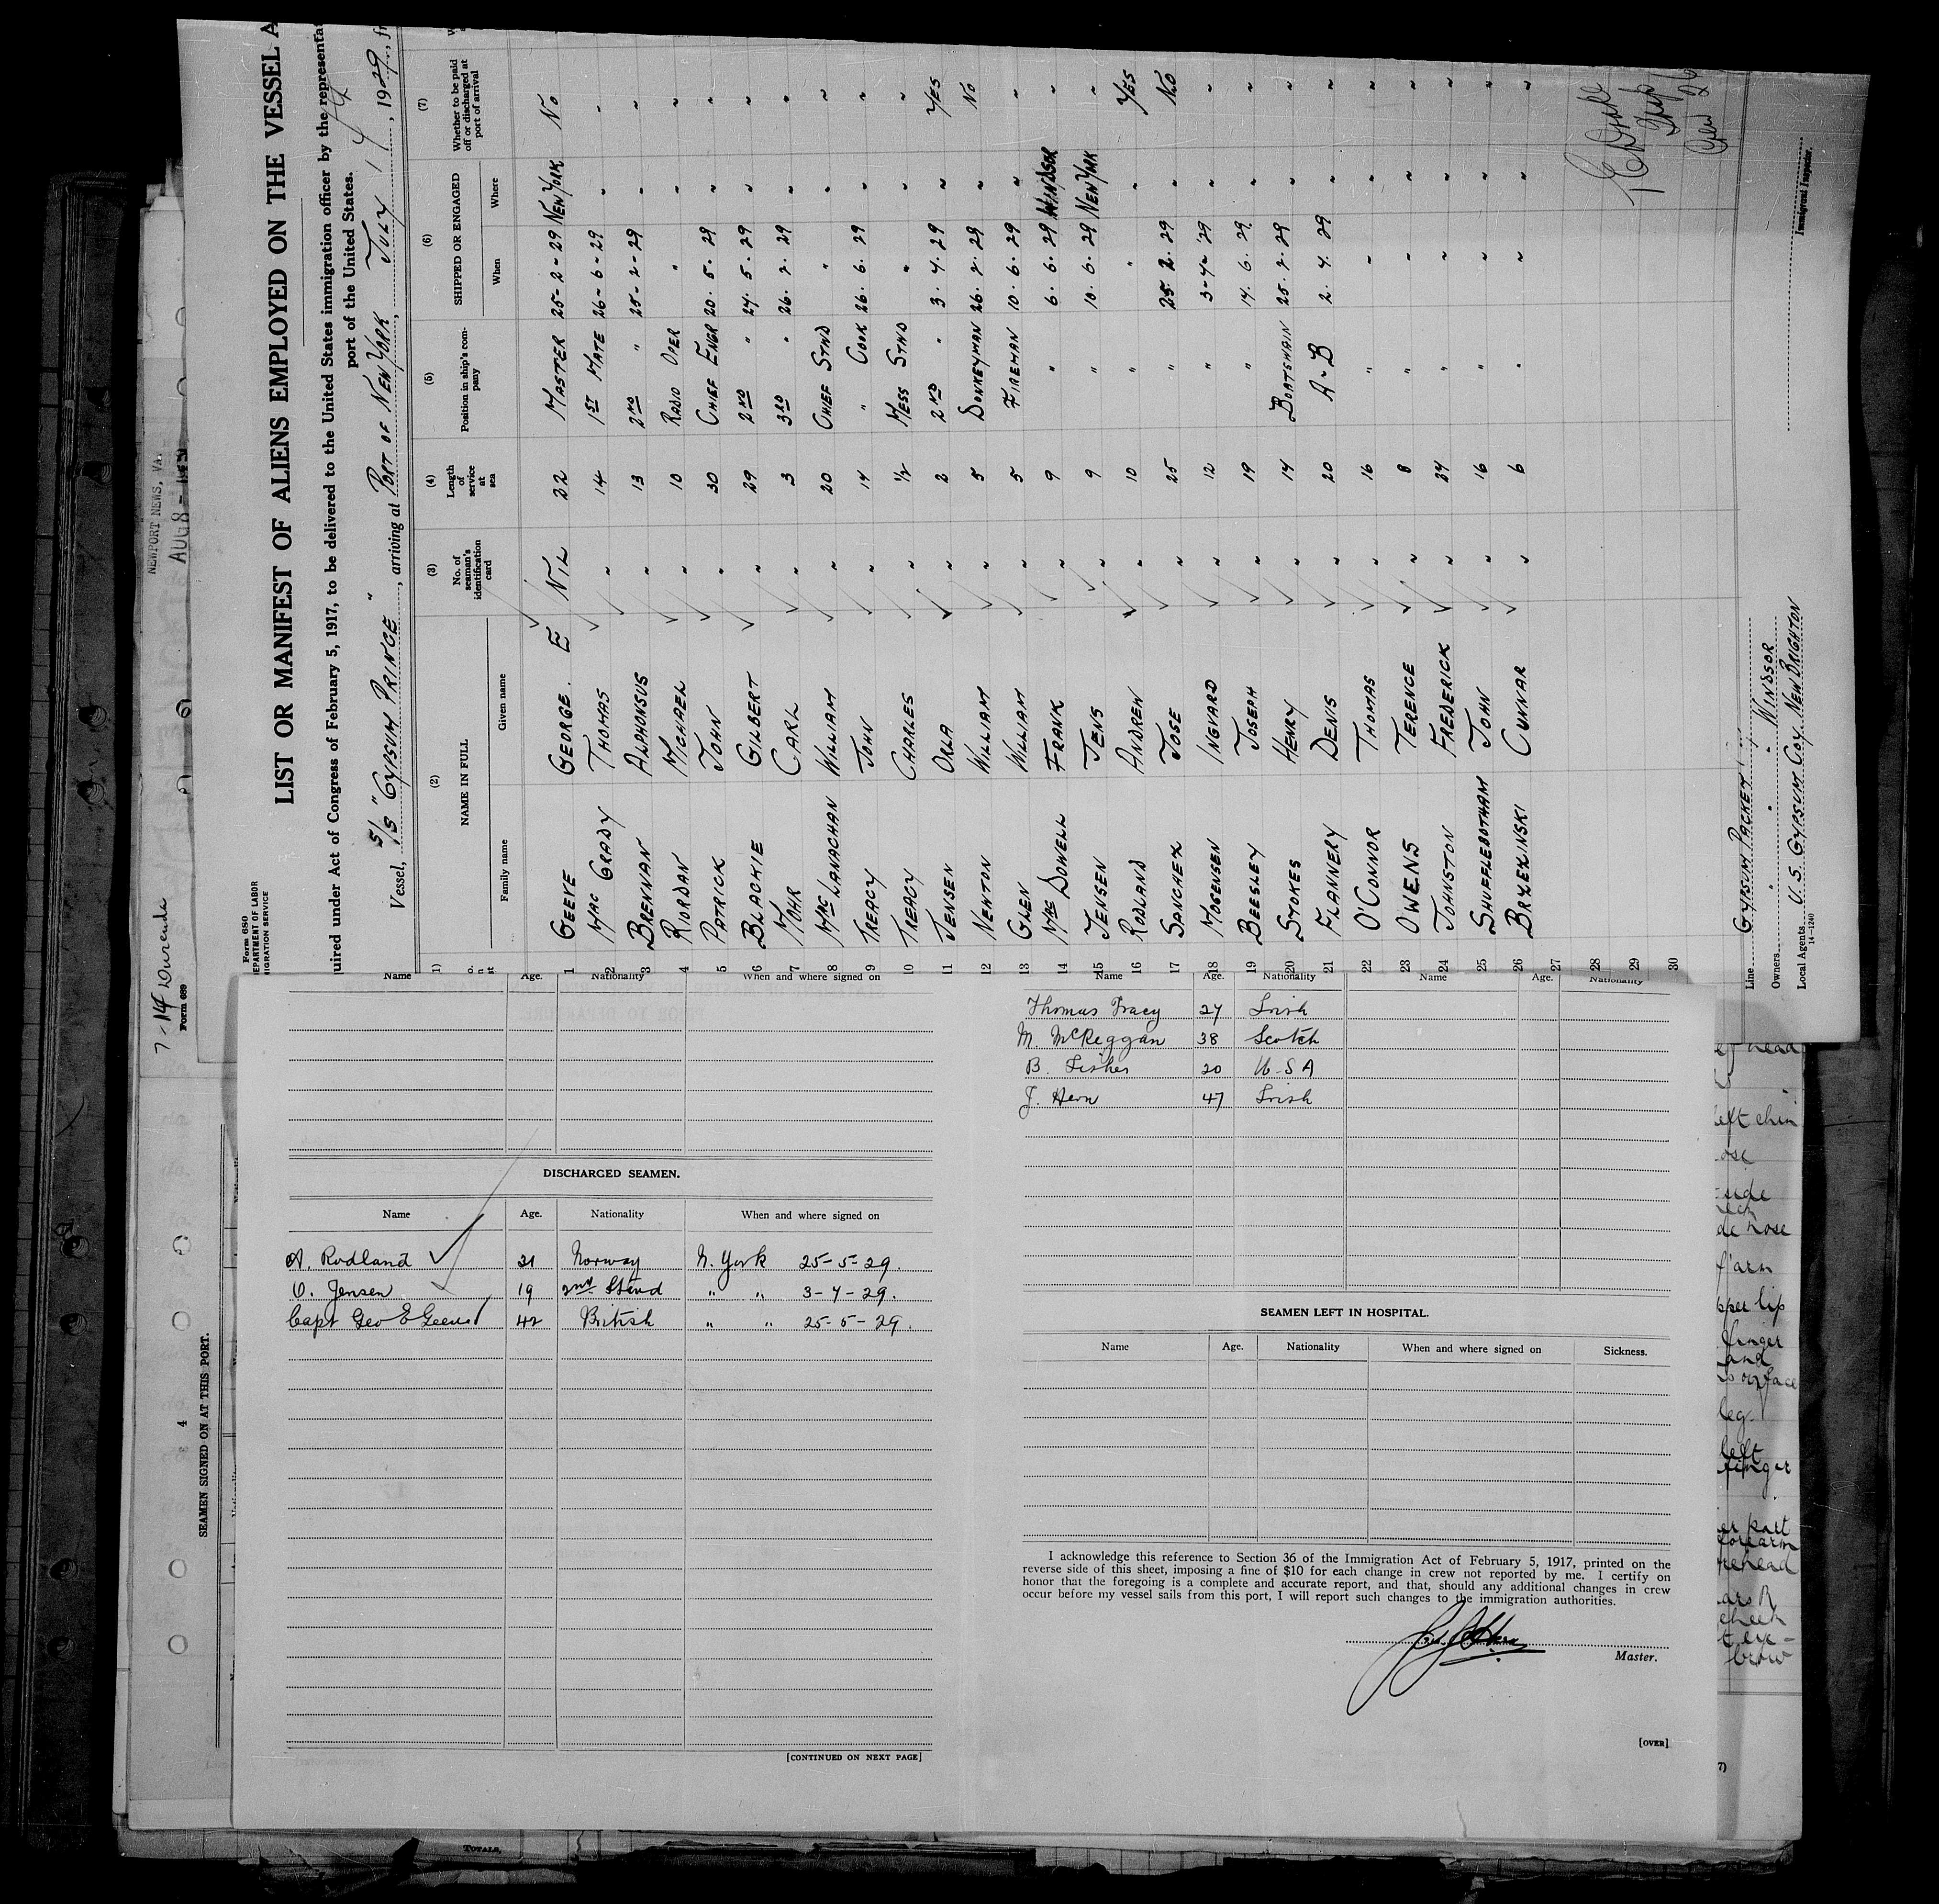 NEWPORT NEWS, VA.
AUG 8 -
Form 689
LIST OR MANIFEST OF ALIENS EMPLOYED ON THE VESSEL A
Form 680
EPARTMENT OF LABOR
MIGRATION SERVICE
uired under Act of Congress of February 5, 1917, to be delivered to the United States immigration officer by the representa
port of the United States.
Vessel, S/S "GYPSUM PRINCE", arriving at PORT OF NEW YORK JULY 14, 1929, f
(1) (2) (3) (4) (5) (6) (7)
NAME IN FULL
No. of seaman's identification card
Length of service at sea
Position in ship's company
SHIPPED OR ENGAGED
Whether to be paid off or discharged at port of arrival
Family name Given name When Where
1 GEEVE GEORGE. E NIL 22 MASTER 25-2-29 NEW YORK NO
2 MAC GRADY THOMAS " 14 1ST MATE 26-6-29 " "
3 BRENNAN ALPHONSUS " 13 2ND " 25-2-29 " "
4 RIORDAN MICHAEL " 10 RADIO OPER " " "
5 PATRICK JOHN " 30 CHIEF ENGR 20.5.29 " "
6 BLACKIE GILBERT " 29 2ND " 24.5.29 " "
7 MOHR CARL " 3 3RD " 26.2.29 " "
8 MAC LANACHAN WILLIAM " 20 CHIEF STWD " " "
9 TREACY JOHN " 14 " COOK 26.6.29 " "
10 TREACY CHARLES " ½ MESS STWD " " "
11 JENSEN ORLA " 2 2ND " 3.4.29 " YES
12 NEWTON WILLIAM " 5 DONKEYMAN 26.2.29 " NO
13 GLEN WILLIAM " 5 FIREMAN 10.6.29 " "
14 MAC DOWELL FRANK " 9 " 6.6.29 WINDSOR "
15 JENSEN JENS " 9 " 10.6.29 NEW YORK "
16 RODLAND ANDREW " 10 " " " YES
17 SANCHEZ JOSE " 25 " 25.2.29 " NO
18 MOGENSEN INGVARD " 12 " 3-4-29 " "
19 BEESLEY JOSEPH " 19 " 14.6.29 " "
20 STOKES HENRY " 14 BOATSWAIN 25.2.29 " "
21 FLANNERY DENIS " 20 A-B 2.4.29 " "
22 O'CONNOR THOMAS " 16 " " " "
23 OWENS TERENCE " 8 " " " "
24 JOHNSTON FREDERICK " 24 " " " "
25 SHUFFLEBOTHAM JOHN " 16 " " " "
26 BRYLEKINSKI GUNNAR " 6 " " " "
27
28
29
30
Line GYPSUM PACKET
Owners " " " WINDSOR
Local Agents U.S. GYPSUM COY. NEW BRIGHTON
14-1240
Immigrant Inspector.
Name Age. Nationality When and where signed on
DISCHARGED SEAMEN.
Name Age. Nationality When and where signed on
A. Rodland 21 Norway N. York 25-5-29.
O. Jensen 19 2nd Stwd " " 3-4-29.
Capt Geo E Geeve 42 British " " 25-5-29.
[CONTINUED ON NEXT PAGE]
Name Age. Nationality Name Age. Nationality
Thomas Tracy 27 Irish
M. McKeggan 38 Scotch
B. Fisher 20 U-S A
J. Hern 47 Irish
SEAMEN LEFT IN HOSPITAL.
Name Age. Nationality When and where signed on Sickness.
I acknowledge this reference to Section 36 of the Immigration Act of February 5, 1917, printed on the
reverse side of this sheet, imposing a fine of $10 for each change in crew not reported by me. I certify on
honor that the foregoing is a complete and accurate report, and that, should any additional changes in crew
occur before my vessel sails from this port, I will report such changes to the immigration authorities.
Master.
[OVER]
4
SEAMEN SIGNED ON AT THIS PORT.
head
left chin
ose
side
neck
de nose
arm
pper lip
finger
and
face
leg
left
finger
er part
forearm
rehead
ars R
cheek
brow
7)
TOTALS.